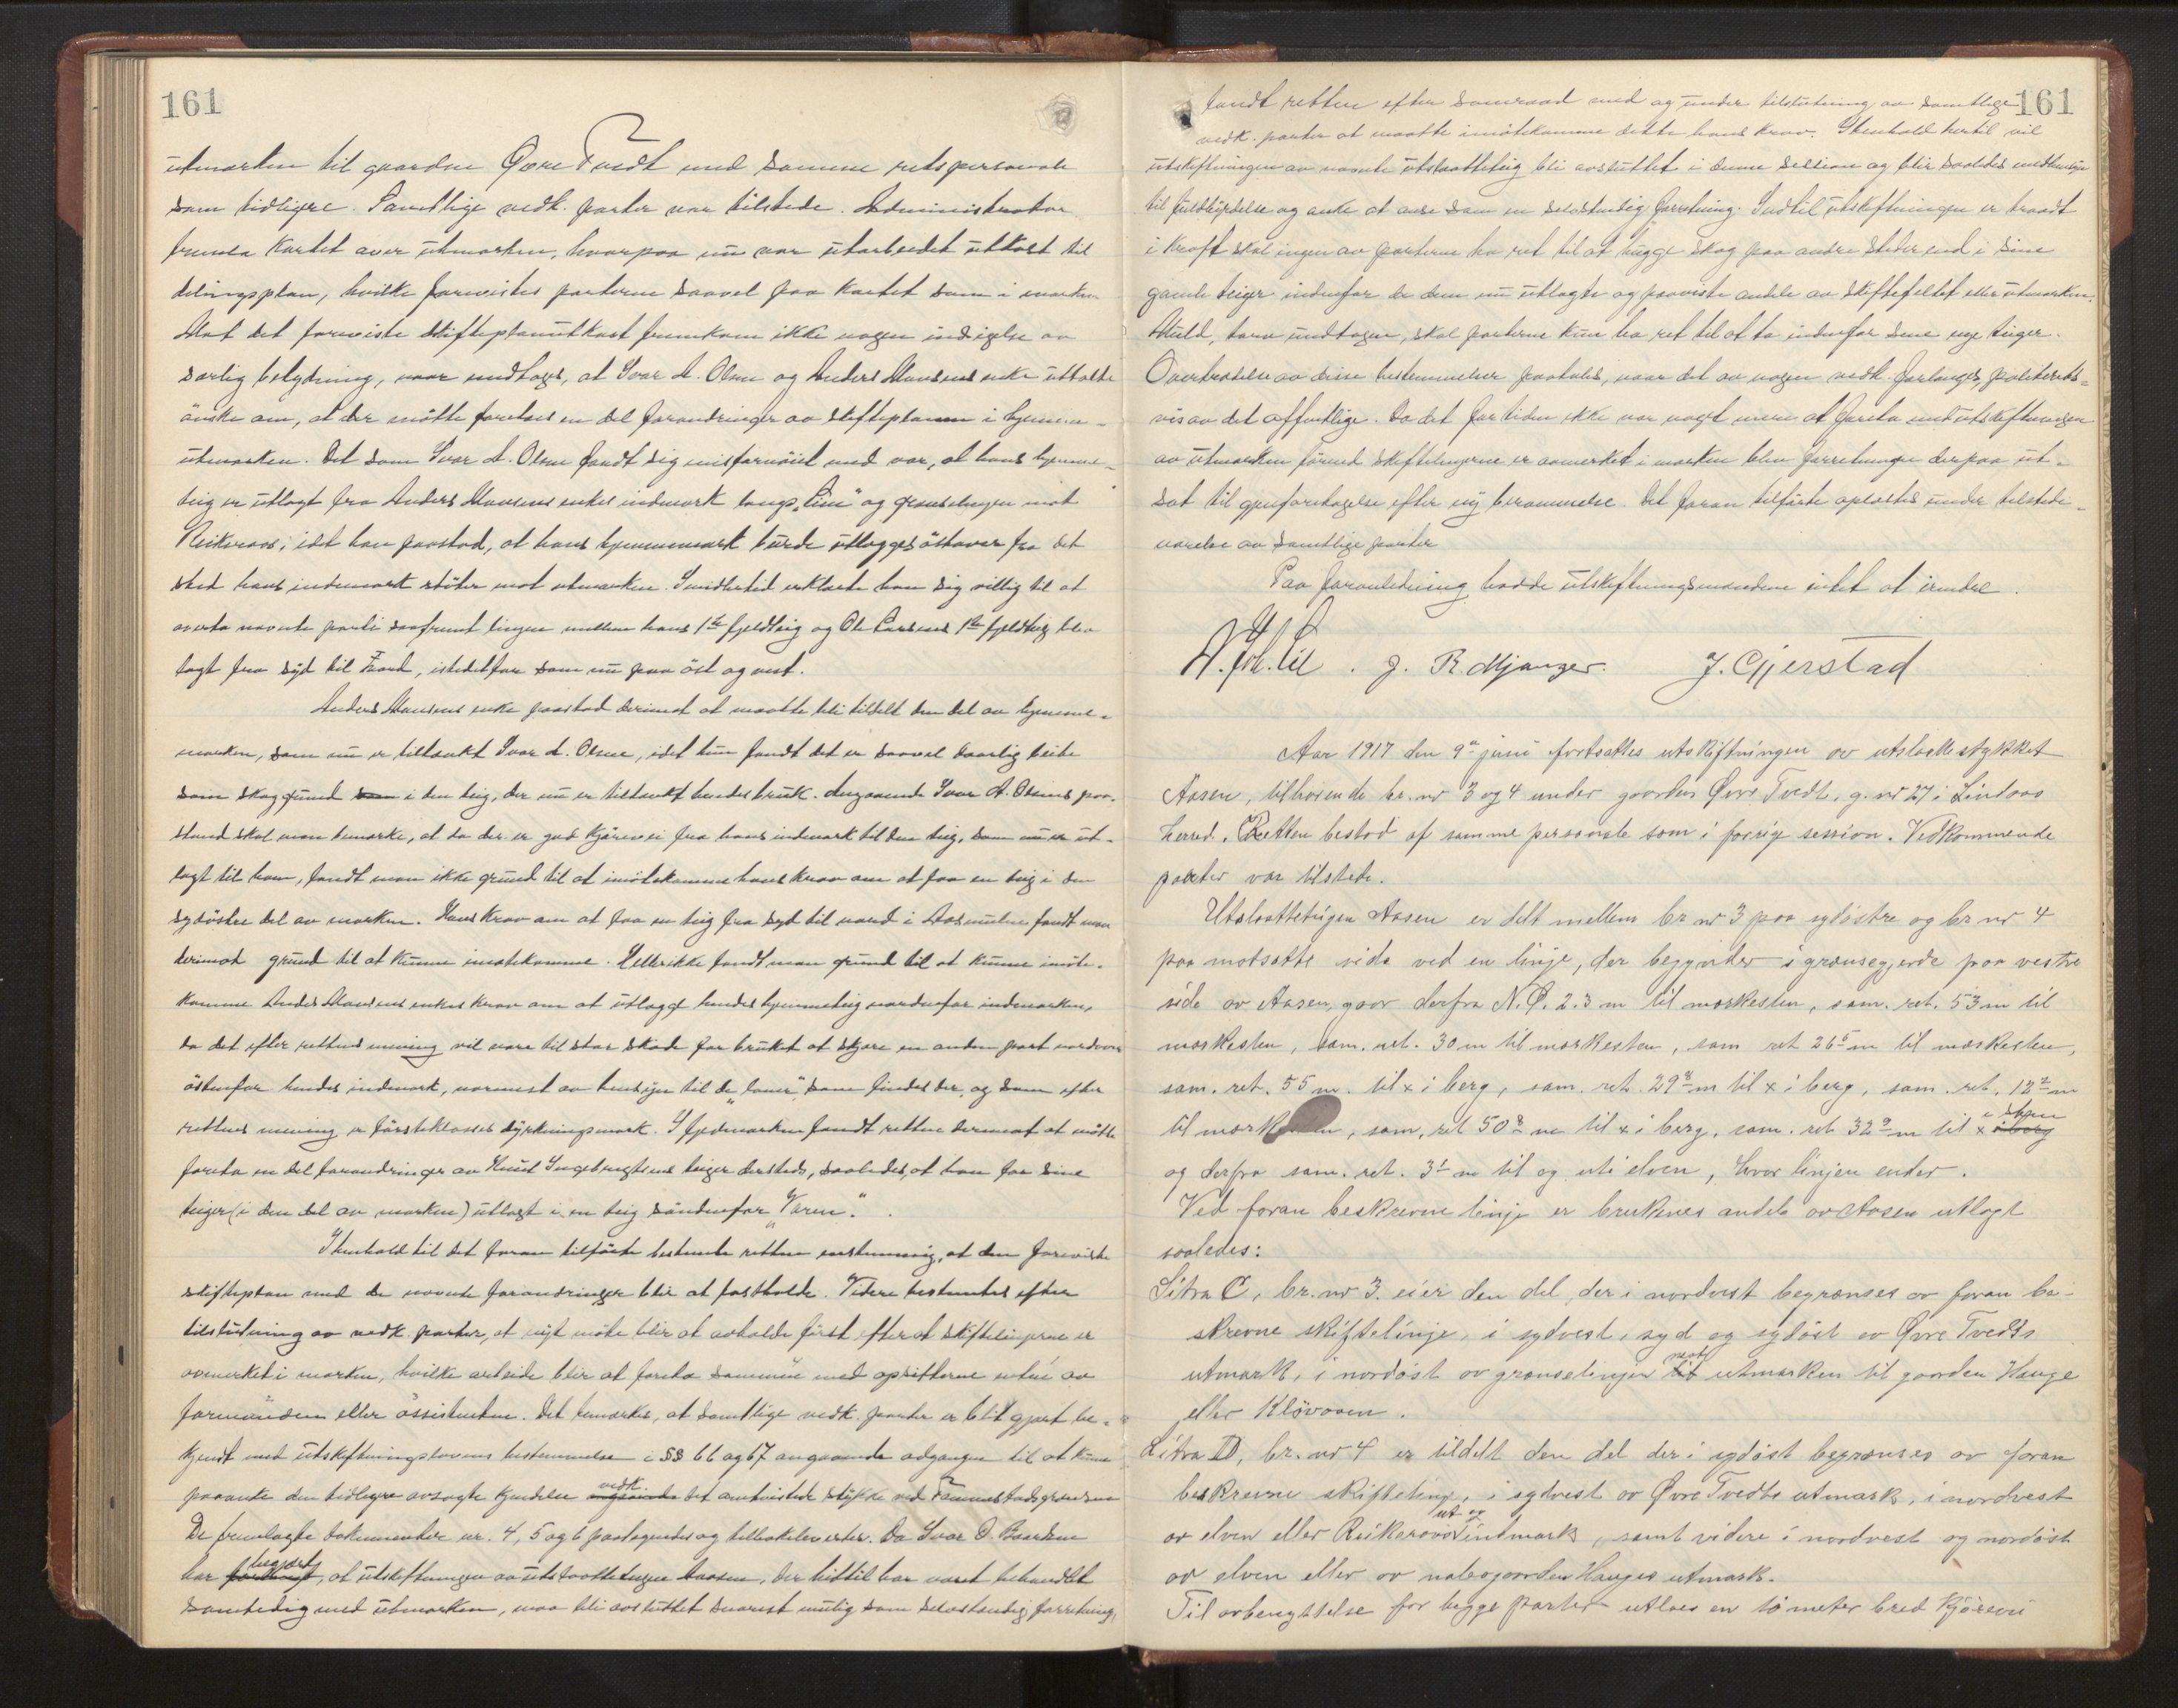 161
utmarken til gaarden Øvre Tvedt med samme retspersonale
som tidligere. Samtlige vedk. parter var tilstede. Administrator
fremla kartet over utmarken, hvorpaa nu var utarbeidet utkast til
delingsplan, hvilke forevistes parterne saavel paa kartet som i marken.
Mot det foreviste skifteplanutkast fremkom ikke nogen indsigelse av
særlig betydning, naar undtages, at Ivar A. Olsen og Anders Monsens enke uttalte
ønske om, at der måtte foretaes en del forandringer av skifteplanen i hjemme-
utmarken. Det som Ivar A. Olsen fandt sig misfornøiet med var, at hans hjemme-
teig er utlagt fra Anders Monsens enkes indmark langs "Lien" og grænselinjen mot
Reikeraas, idet han paastod, at hans hjemmemark burde utlægges østover fra det
sted hans indmark støter mot utmarken. Imidlertid erklærte han sig villig til at
overta nævnte parti saafremt linjen mellem hans 1ste fjeldteig og Ole Larsens 1ste fjeldteig blev
lagt fra syd til nord, istedetfor som nu paa øst og vest.
Anders Monsens enke paastod derimot at maatte bli tildelt den del av hjemme-
marken, som nu er tiltænkt Ivar A. Olsen, idet hun fandt det er saavel daarlig beite
som skoggrund som i den teig, der nu er tiltænkt hendes bruk. Angaaende Ivar A. Olsens paa-
stand skal man bemerke, at da der er god kjørevei fra hans indmark til den teig, som nu er ut-
lagt til ham, fandt man ikke grund til at imøtekomme hans krav om at faa en teig i den
sydøstre del av marken. Hans krav om at faa en teig fra syd til nord i Aasmulen fandt man
derimot grund til at kunne imøtekomme. Heller ikke fandt man grund til at kunne imøte-
komme Anders Monsens enkes krav om at utlægge hendes hjemmeteig nordenfor indmarken,
da det efter rettens mening vil være til stor skade for bruket at skjære en anden part nordover
østenfor hendes indmark, nærmest av hensyn til de "loner", som findes der, og som efter
rettens mening er førsteklasses dyrkningsmark. I fjeldmarken fandt retten derimot at måtte
foreta en del forandringer av Knud Ingebrigtsens teiger dersteds, saaledes, at han faar sine
teiger (i den del av marken) utlagt i en teig søndenfor "Varen".
I henhold til det foran tilførte bestemte retten enstemmig, at den foreviste
skifteplan med de nævnte forandringer blir at fastholde. Videre bestemtes efter
tilslutning av vedk. parter, at nyt møte blir at avholde først efter at skiftelinjerne er
avmerket i marken, hvilke arbeide blir at foreta sammen med opsitterne enten av
formanden eller assistenten. Det bemerkes, at samtlige vedk. parter er blit gjort be-
kjendt med utskiftningslovens bestemmelse i §§ 66 og 67 angaaende adgangen til at kunne
paaanke den tidligere avsagte kjendelse angaaende vedk. det omtvistede stykke ved Tannestadsgrændsen
De fremlagte dokumenter nr. 4, 5 og 6 paategnedes og tilbakeleverte. Da Ivar O.
har forlangt begjært, at utskiftningen av utslaatteteigen Aasen, der hittil har været behandlet
samtidig med utmarken, maa bli avsluttet snarest mulig som selvstendig forretning,
161
fandt retten efter samraad med og under tilslutning av samtlige
vedk. parter at maatte imøtekomme dette hans krav. I henhold hertil vil
utskiftningen av nævnte utslaatteteig bli avsluttet i denne session og blir saaledes medhensyn
til fuldbyrdelse og anke at anse som en selvstendig forretning. Indtil utskiftningen er traadt
i kraft skal ingen av parterne ha ret til at hugge skog paa andre steder end i sine
gamle teiger indenfor de dem nu utlagte og paaviste andele av skiftefeltet eller utmarken.
Muld, torv undtagen, skal parterne kun ha ret til at ta indenfor sine nye teiger.
Overtrædelse av disse bestemmelser paatales, naar det av nogen vedk. forlanges, politirets-
vis av det offentlige. Da det for tiden ikke var noget mere at foreta med utskiftningen
av utmarken førend skiftelinjerne er avmerket i marken blev forretningen derpaa ut-
sat til gjenforetagelse efter ny berammelse. Det foran tilførte oplæstes under tilstede-
værelse av samtlige parter
Paa foranledning hadde utskiftningsmændene intet at erindre.
J. R. Mjanger. J. Gjerstad
Aar 1917 den 9de juni fortsattes utskiftningen av utslaattestykket
Aasen, tilhørende br. nr 3 og 4 under gaarden Øvre Tvedt, g. nr 27 i Lindaas
herred. Retten bestod af samme personale som i forrige session. Vedkommende
parter var tilstede.
Utslaatteteigen Aasen er delt mellem br nr 3 paa sydøstre og br nr 4
paa motsatte side ved en linje, der begynder i grænsegjerde paa vestre
side av Aasen, gaar derfra N.Ø. 2.3 m til merkesten, sam. ret. 53 m til
merkesten, sam. ret. 30 m til merkesten, sam ret 26 5 m til merkesten,
sam. ret. 55 m. til x i berg, sam. ret. 29 8 m til x i berg, sam. ret. 12 2 m
til merkesten, sam. ret 50 8 m til x i berg, sam. ret 32 9 m til x i berg i steen
og derfra sam. ret. 3 1 m til og uti elven, hvor linjen ender.
Ved foran beskrevne linje er brukenes andele av Aasen utlagt
saaledes:
Litra C, br. nr 3. eier den del, der i nordvest begrænses av foran be-
skrevne skiftelinje, i sydvest, syd og sydøst av Øvre Tvedts
utmark, i nordøst av grænselinjen til mot utmarken til gaarden Hauge
eller Kløvaaen.
Litra D, br. nr 4 er tildelt den del der i sydøst begrænses av foran
beskrevne skiftelinje, i sydvest av Øvre Tvedts utmark, i nordvest
av elven eller Reikeraas ut og indmark, samt videre i nordvest og nordøst
av elven eller av nabogaarden Hauges utmark.
Til avbenyttelse for begge parter utlaes en to meter bred kjørevei